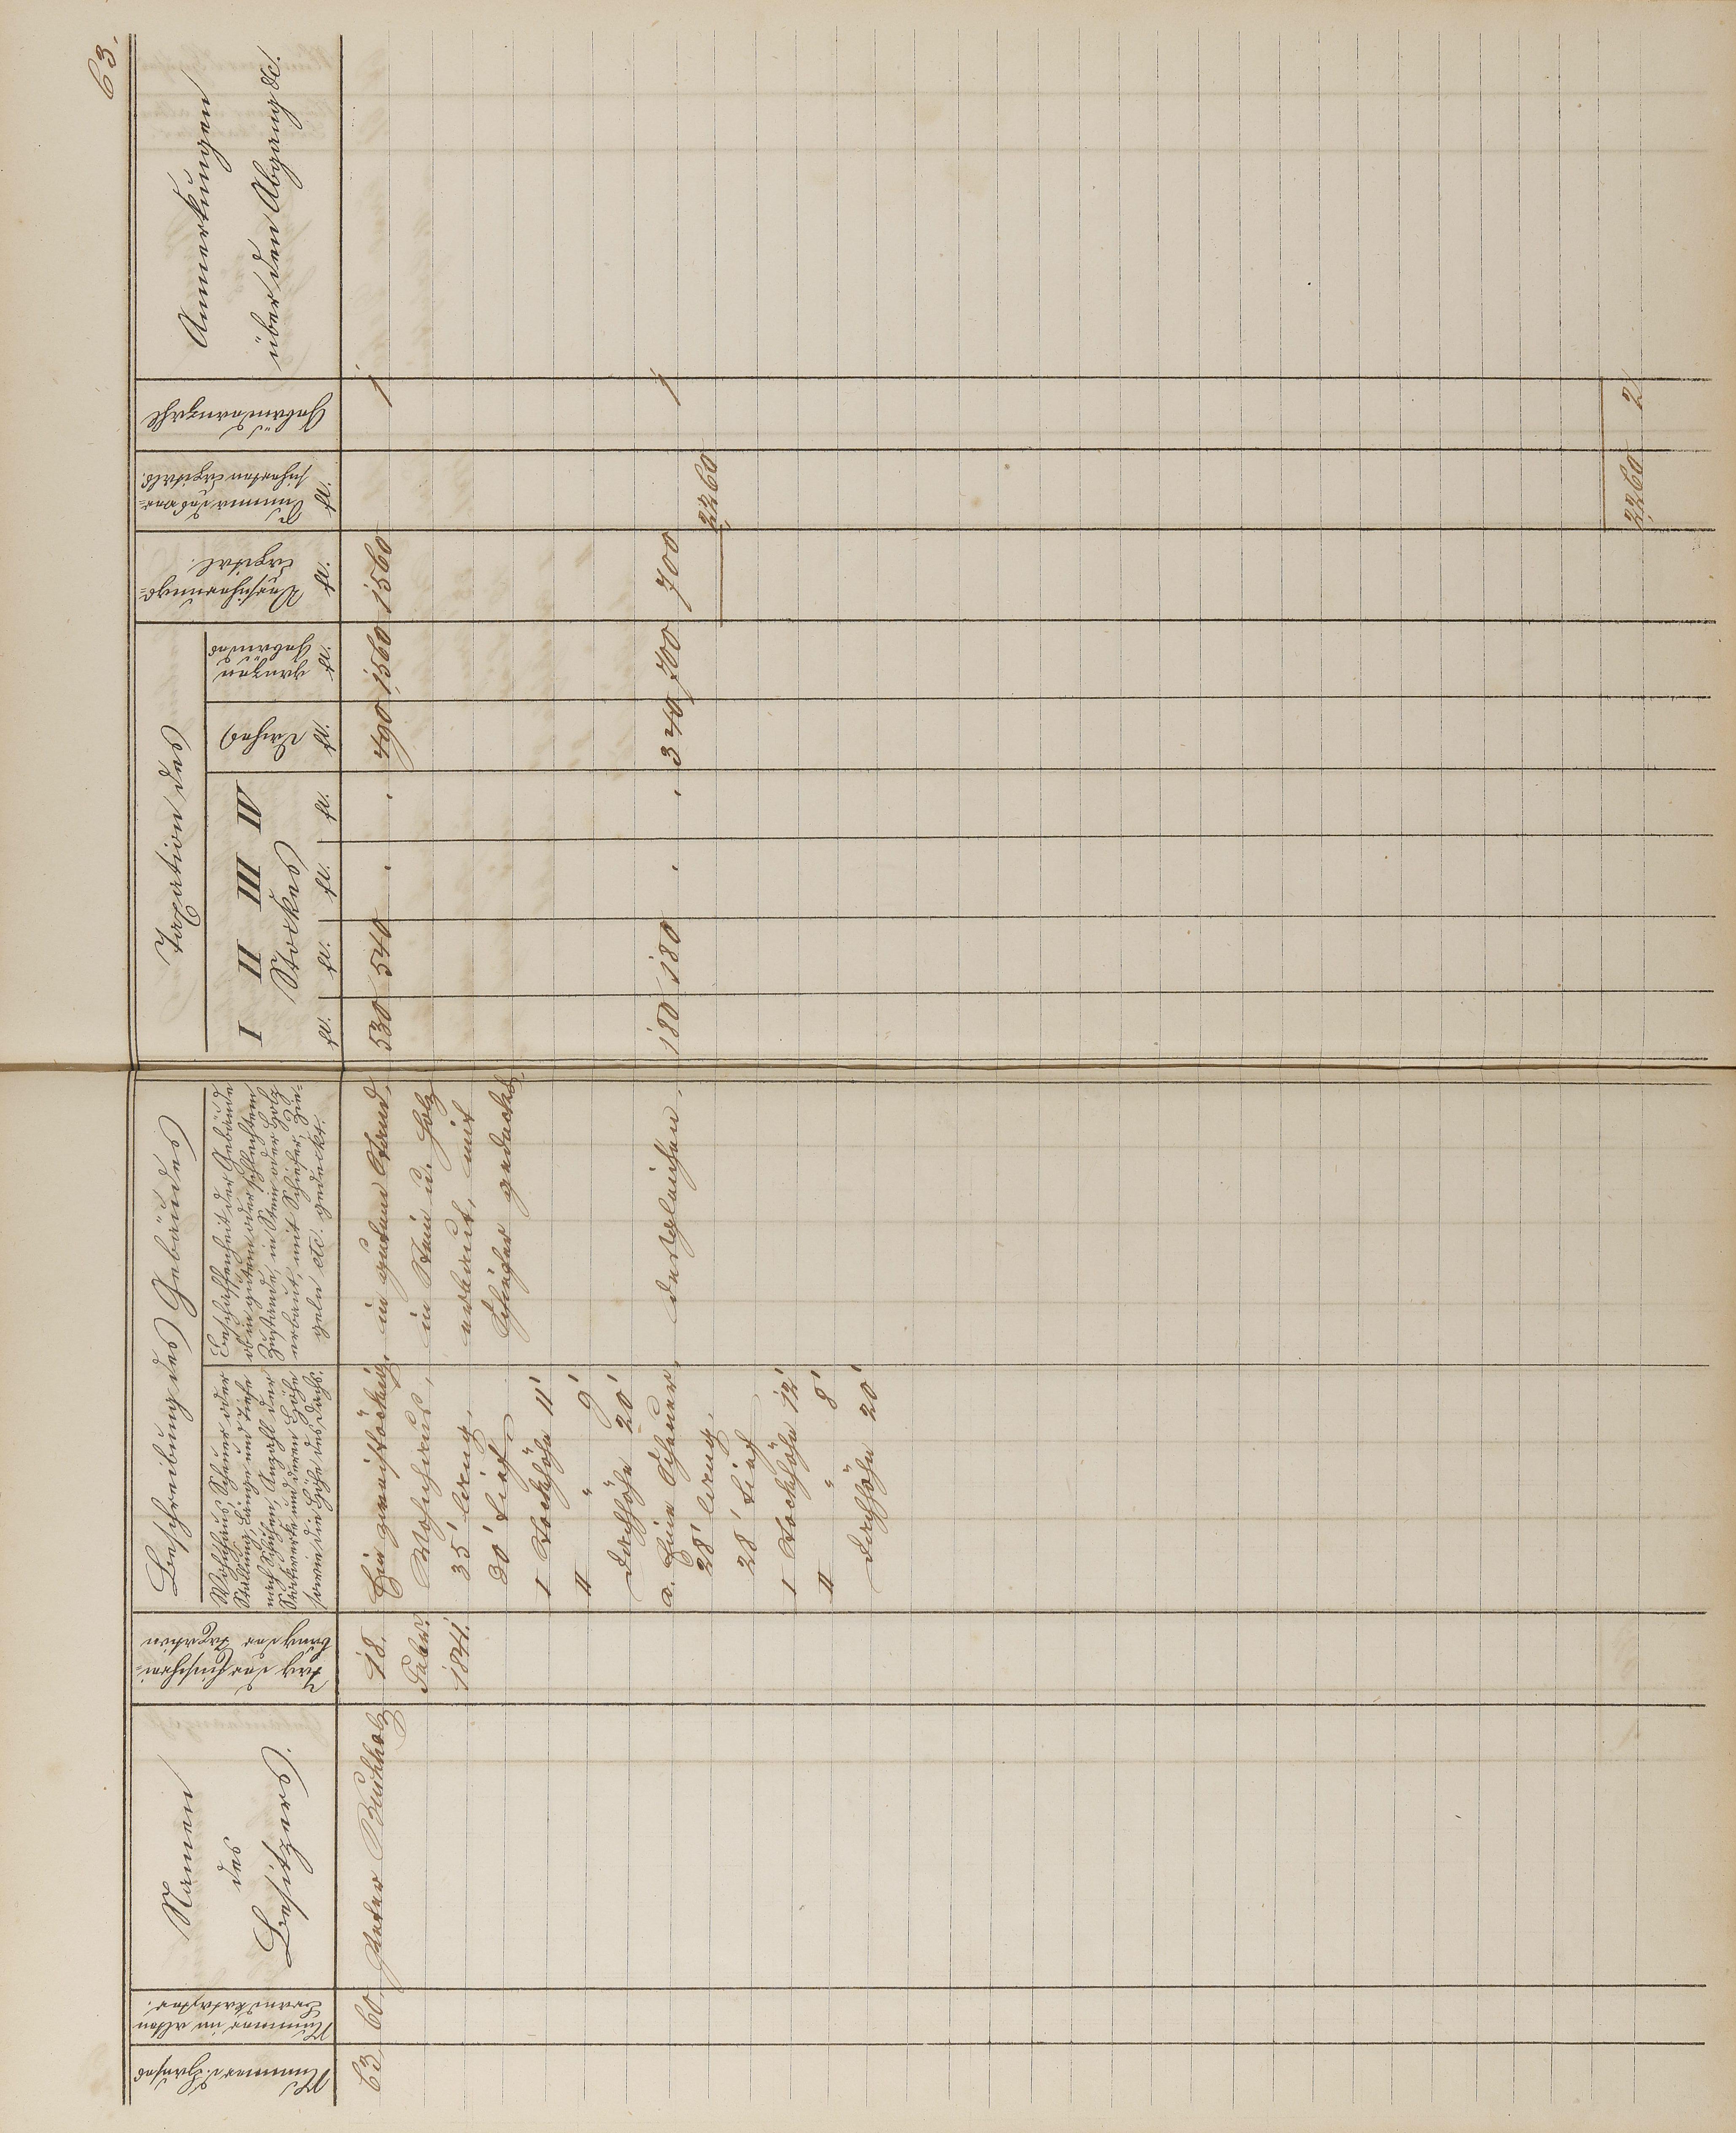 63.
Nummer d. Hauses
Nummer im alten
Brandkataster.
Namen
des
Besitzers.
Tag der Einschrei-
bung der Taxation
Beschreibung des Gebäudes
Wohnhaus, Scheuer oder
Stallung, Länge und Tiefe
nach Schuhen, Anzahl der
Stockwerke und deren Höhe
sowie die Höhe des Dachs.
Beschaffenheit der Gebäude
ob in gutem oder schlechtem
Zustande, in Stein oder Holz
erbaut, mit Schiefer, Zie-
geln etc. gedeckt.
Taxation des
I II III IV
Stockes
fl. fl. fl. fl.
Daches
fl.
ganzen
Gebäudes
fl.
Versicherungs-
Capital.
fl.
Summa des ver-
sicherten Capitals.
fl.
Gebäudeanzahl
Anmerkungen
über den Abgang &c.
63 60 Peter Buchholz 18. Ein zweistöckig. in gutem Stand, 530 540 . . 490 1560 1560 1
Febr. Wohnhaus, in Stein u. Holz
1841. 35' lang, erbaut, mit
30' tief, Schiefer gedeckt,
I Stockhöhe 11'
II " 9'
Dachhöhe 20'
a. Eine Scheuer, desgleichen, 180 180 . . 340 700 700 1
28' lang, 2260
28' tief
I Stockhöhe 12'
II " 8'
Dachhöhe 20'
2260 2